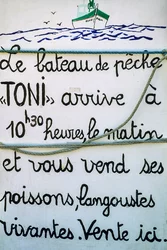 Le bateau de pêche
«TONI» arrive à
10h30 heures, le matin
et vous vend ses
poissons, langoustes
vivantes. Vente ici.